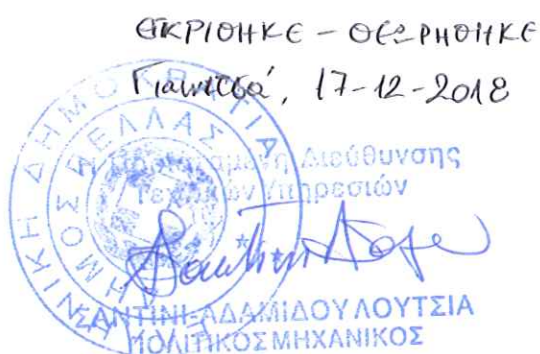 ΕΓΚΡΙΘΗΚΕ - ΘΕΩΡΗΘΗΚΕ
Γιαννιτσά, 17-12-2018
ΕΛΛΗΝΙΚΗ ΔΗΜΟΚΡΑΤΙΑ
ΔΗΜΟΣ ΠΕΛΛΑΣ
Η Προϊσταμένη Διεύθυνσης
Τεχνικών Υπηρεσιών
ΣΑΝΤΙΝΙ-ΑΔΑΜΙΔΟΥ ΛΟΥΤΣΙΑ
ΠΟΛΙΤΙΚΟΣ ΜΗΧΑΝΙΚΟΣ